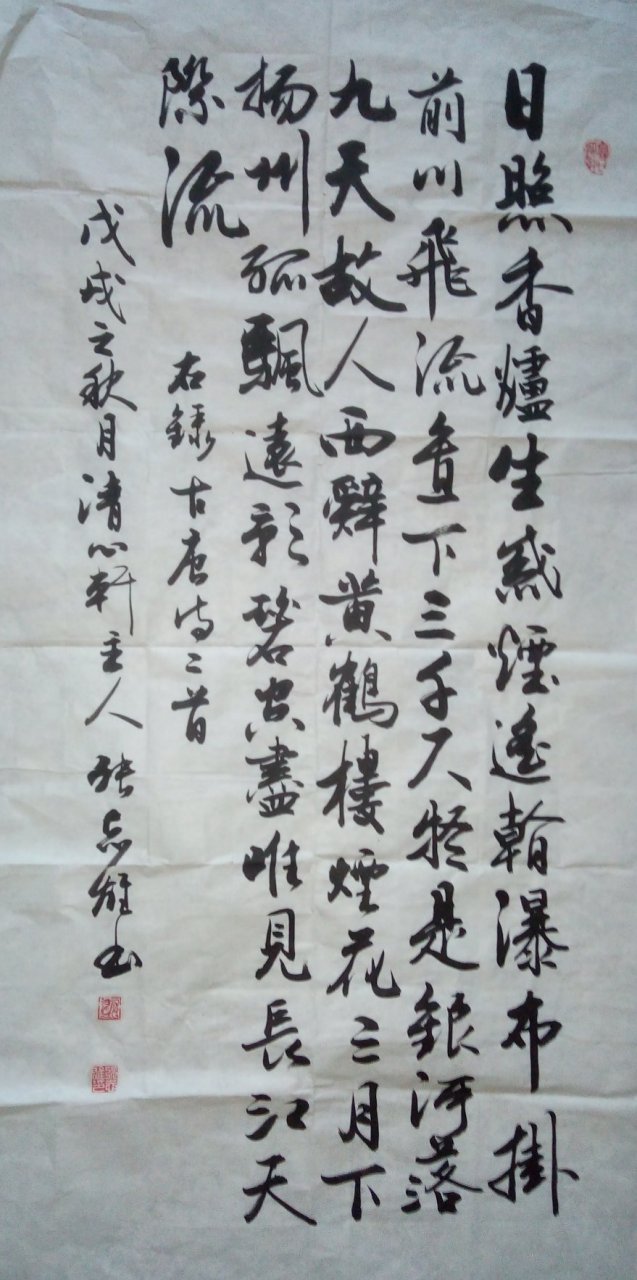 日照香爐生煙遙瀑布掛
前川飛流直下三千尺疑是銀河落
九天故人西辭黃鶴樓煙花三月下
揚州孤颿遠影碧空盡唯見長江天
際流
右錄古唐诗二首
戊戌之秋月清心軒主人張志雄书